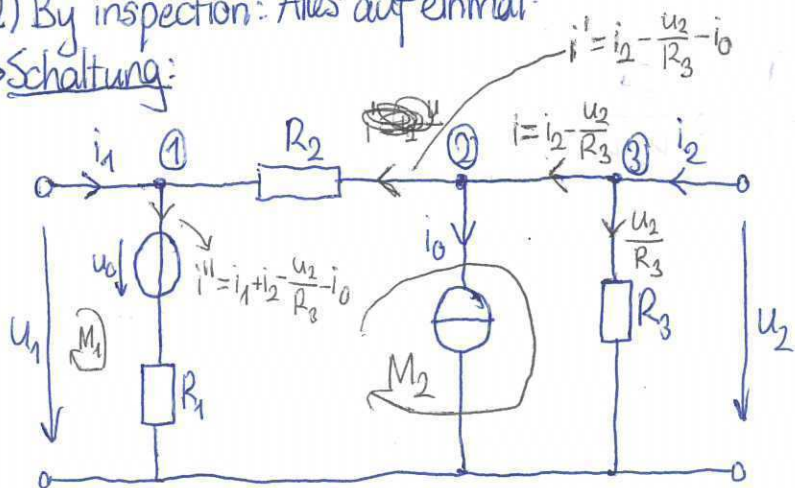 2) By inspection: Alles auf einmal:
Schaltung:
i' = i₂ - u₂/R₃ - i₀
i₁
①
R₂
②
i = i₂ - u₂/R₃
③
i₂
u₀
i'' = i₁ + i₂ - u₂/R₃ - i₀
i₀
u₂/R₃
U₁
M₁
R₁
M₂
R₃
U₂